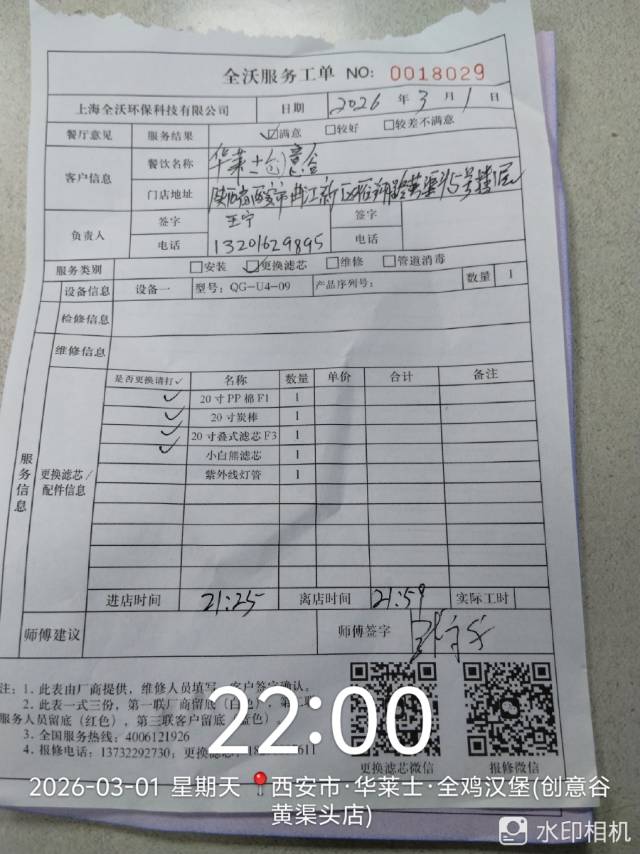 全沃服务工单 NO: 0018029
上海全沃环保科技有限公司 日期 2026 年 3 月 1 日
餐厅意见 服务结果 ☑满意 □较好 □较差不满意
客户信息 餐饮名称 华莱士创意谷
门店地址 陕西省西安市曲江新区 黄渠头5号楼1层
负责人 签字 王宁 签字
电话 13201629895 电话
服务类别 □安装 ☑更换滤芯 □维修 □管道消毒
设备信息 设备一 型号: QG-U4-09 产品序列号: 数量 1
检修信息
维修信息
服务信息 更换滤芯/配件信息
是否更换请打✓ 名称 数量 单价 合计 备注
✓ 20寸PP棉F1 1
✓ 20寸炭棒 1
✓ 20寸叠式滤芯F3 1
✓ 小白熊滤芯 1
紫外线灯管 1
进店时间 21:25 离店时间 21:59 实际工时
师傅建议 师傅签字
注: 1. 此表由厂商提供，维修人员填写，客户签字确认。
2. 此表一式三份，第一联厂商留底（白色），第二联
服务人员留底（红色），第三联客户留底（蓝色）
3. 全国服务热线: 4006121926
4. 报修电话: 13732292730, 更换滤芯: 611
更换滤芯微信 报修微信
22:00
2026-03-01 星期天 西安市·华莱士·全鸡汉堡(创意谷
黄渠头店)
水印相机